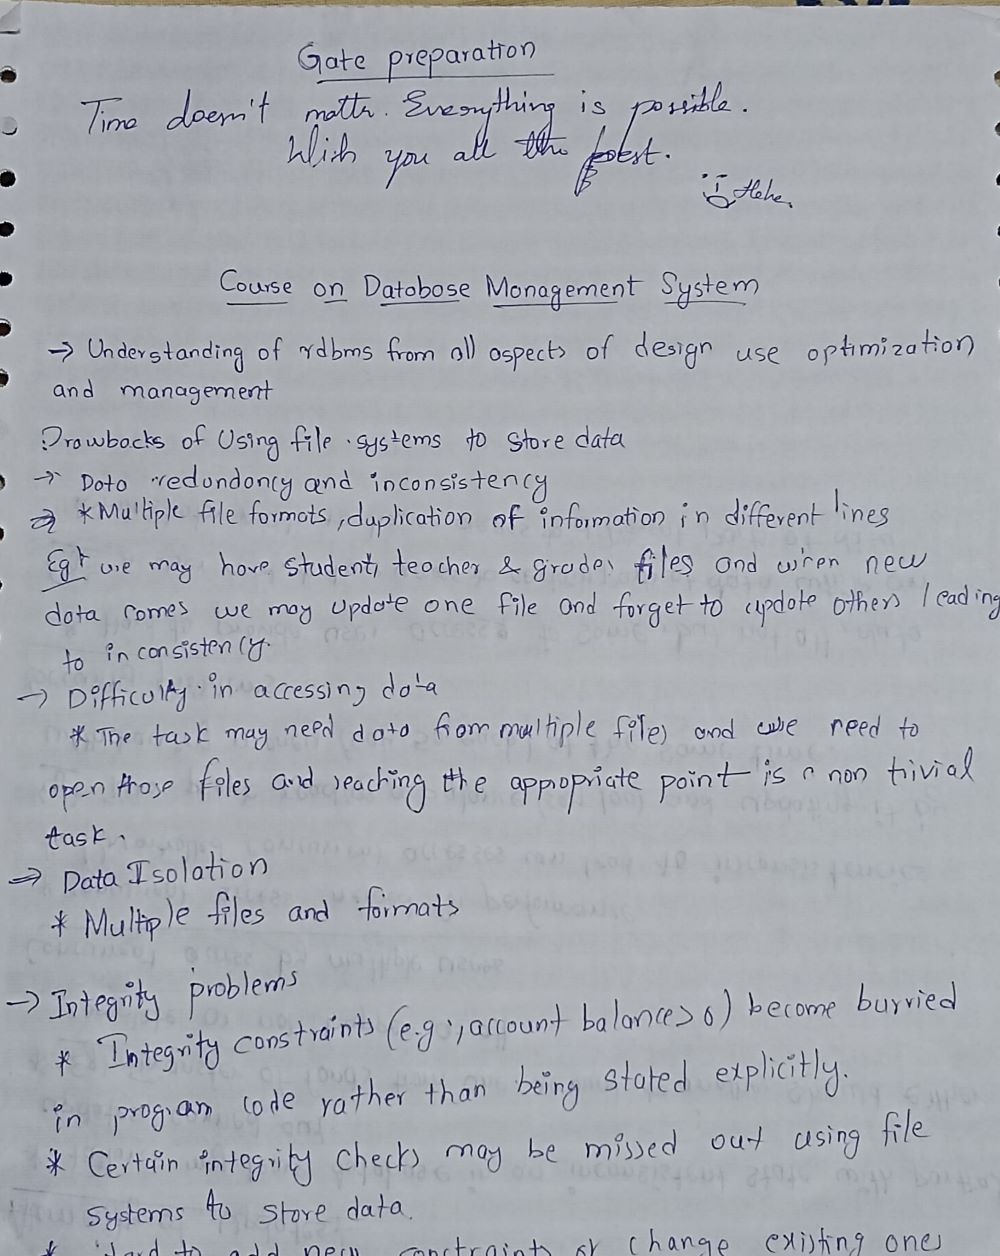 Gate preparation
Time doesn't mattr. Everything is possible.
Wish you all the best.
Hehe.
Course on Database Management System
→ Understanding of rdbms from all aspects of design use optimization
and management
Drawbacks of Using file systems to store data
→ Data redundancy and inconsistency
→ * Multiple file formats, duplication of information in different lines
Eg: we may have student, teacher & grades files and when new
data comes we may update one file and forget to update others leading
to inconsistency.
→ Difficulty in accessing data
* The task may need data from multiple files and we need to
open those files and reaching the appropriate point is a non trivial
task.
→ Data Isolation
* Multiple files and formats
→ Integrity problems
* Integrity constraints (e.g:, account balance > 0) become burried
in program code rather than being stated explicitly.
* Certain integrity checks may be missed out using file
systems to store data.
* Hard to add new constraints or change existing ones